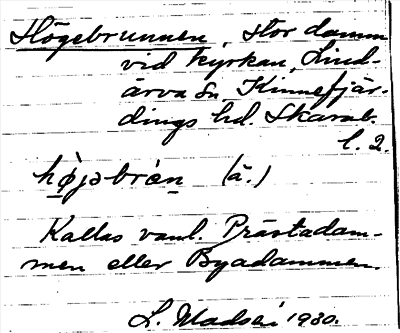 Högebrunnen, stor damm
vid kyrkan, Lind-
ärva sn, Kinnefjär-
dings hd. Skarab.
l. 2.
hǿjəbrɷn (ä.)
Kallas vanl. Prästadam-
men eller Byadammen.
L. Madsén 1930.